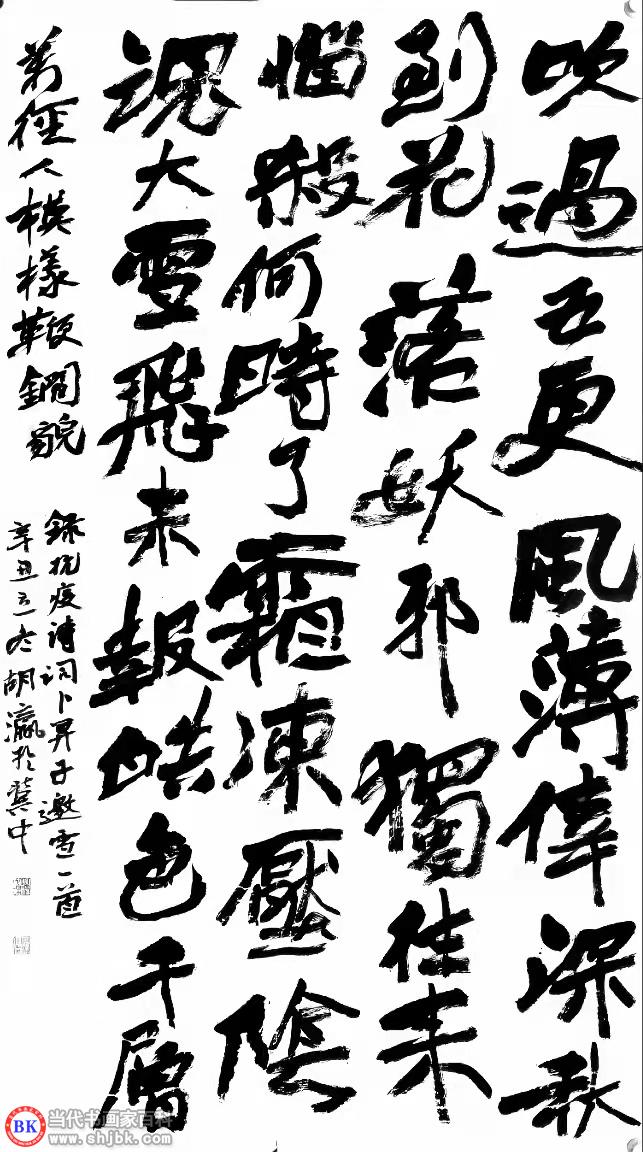 吹過五更風薄倖深秋
到花落妖邪獨往来
惱殺何時了霜凍壓陰
魂大雪飛未報皓色千層
萬徑人模樣鞭鐧貌
録抗疫诗词卜算子邀雪一首
辛丑立冬胡瀛於冀中
BK
当代书画家百科
www.shjbk.com